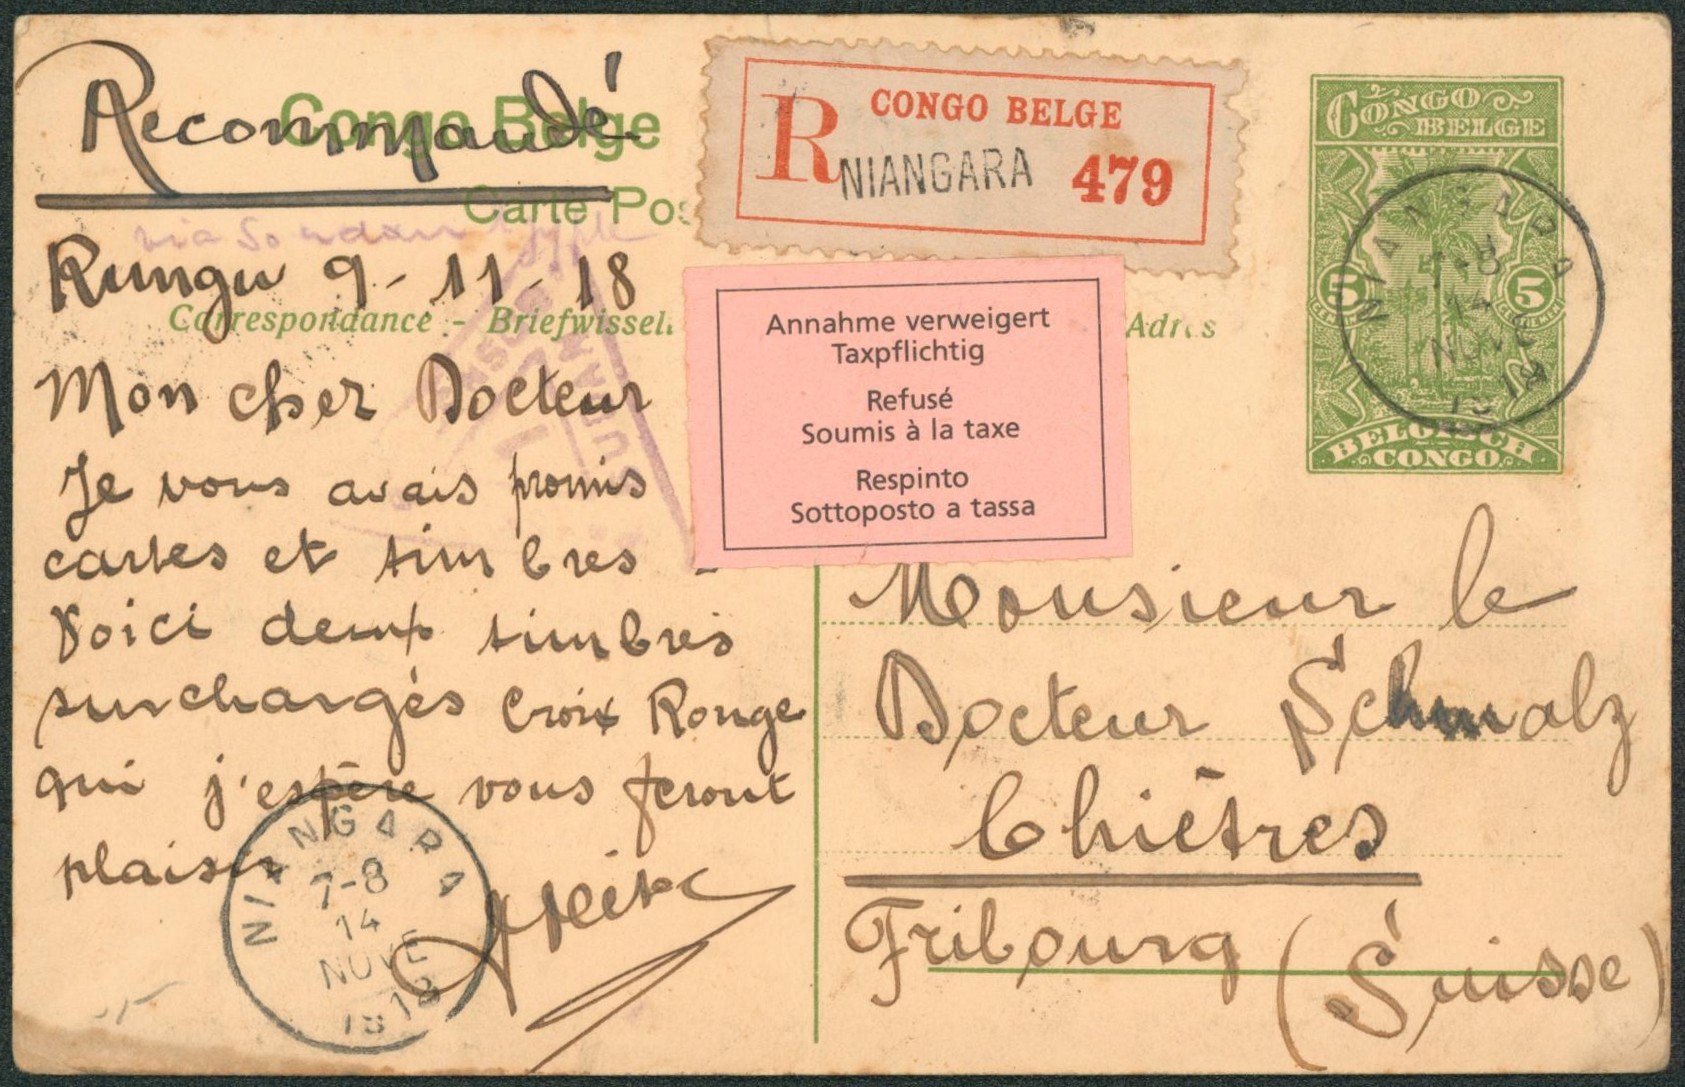 Congo Belge
Recommandé
Carte Pos
via Soudan Egypte
Rungu 9-11-18
Correspondance - Briefwissel
Adres
Mon cher Docteur
Je vous avais promis
cartes et timbres -
Voici deux timbres
surchargés Croix Rouge
qui j'espère vous feront
plaisir
NIANGARA
7-8
14
NOVE
18 18
R CONGO BELGE
NIANGARA 479
Annahme verweigert
Taxpflichtig
Refusé
Soumis à la taxe
Respinto
Sottoposto a tassa
CONGO
BELGE
5 5
BELGISCH
CONGO
NIANGARA
7-8
14
NOVE
18 18
Monsieur le
Docteur Schmalz
Chiètres
Fribourg (Suisse)